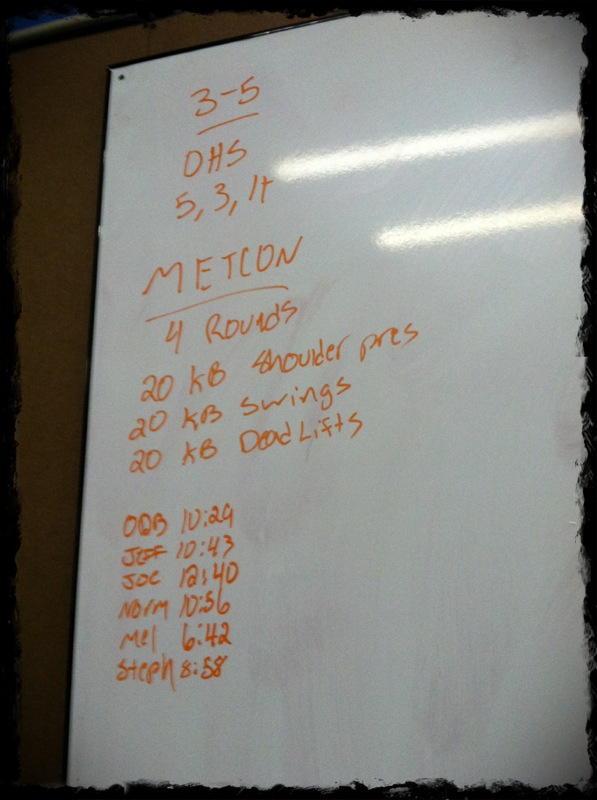 3-5
OHS
5, 3, 1+
METCON
4 Rounds
20 KB Shoulder pres
20 KB Swings
20 KB DeadLifts
ODB 10:29
JEFF 10:43
JOE 12:40
Norm 10:56
Mel 6:42
Steph 8:58